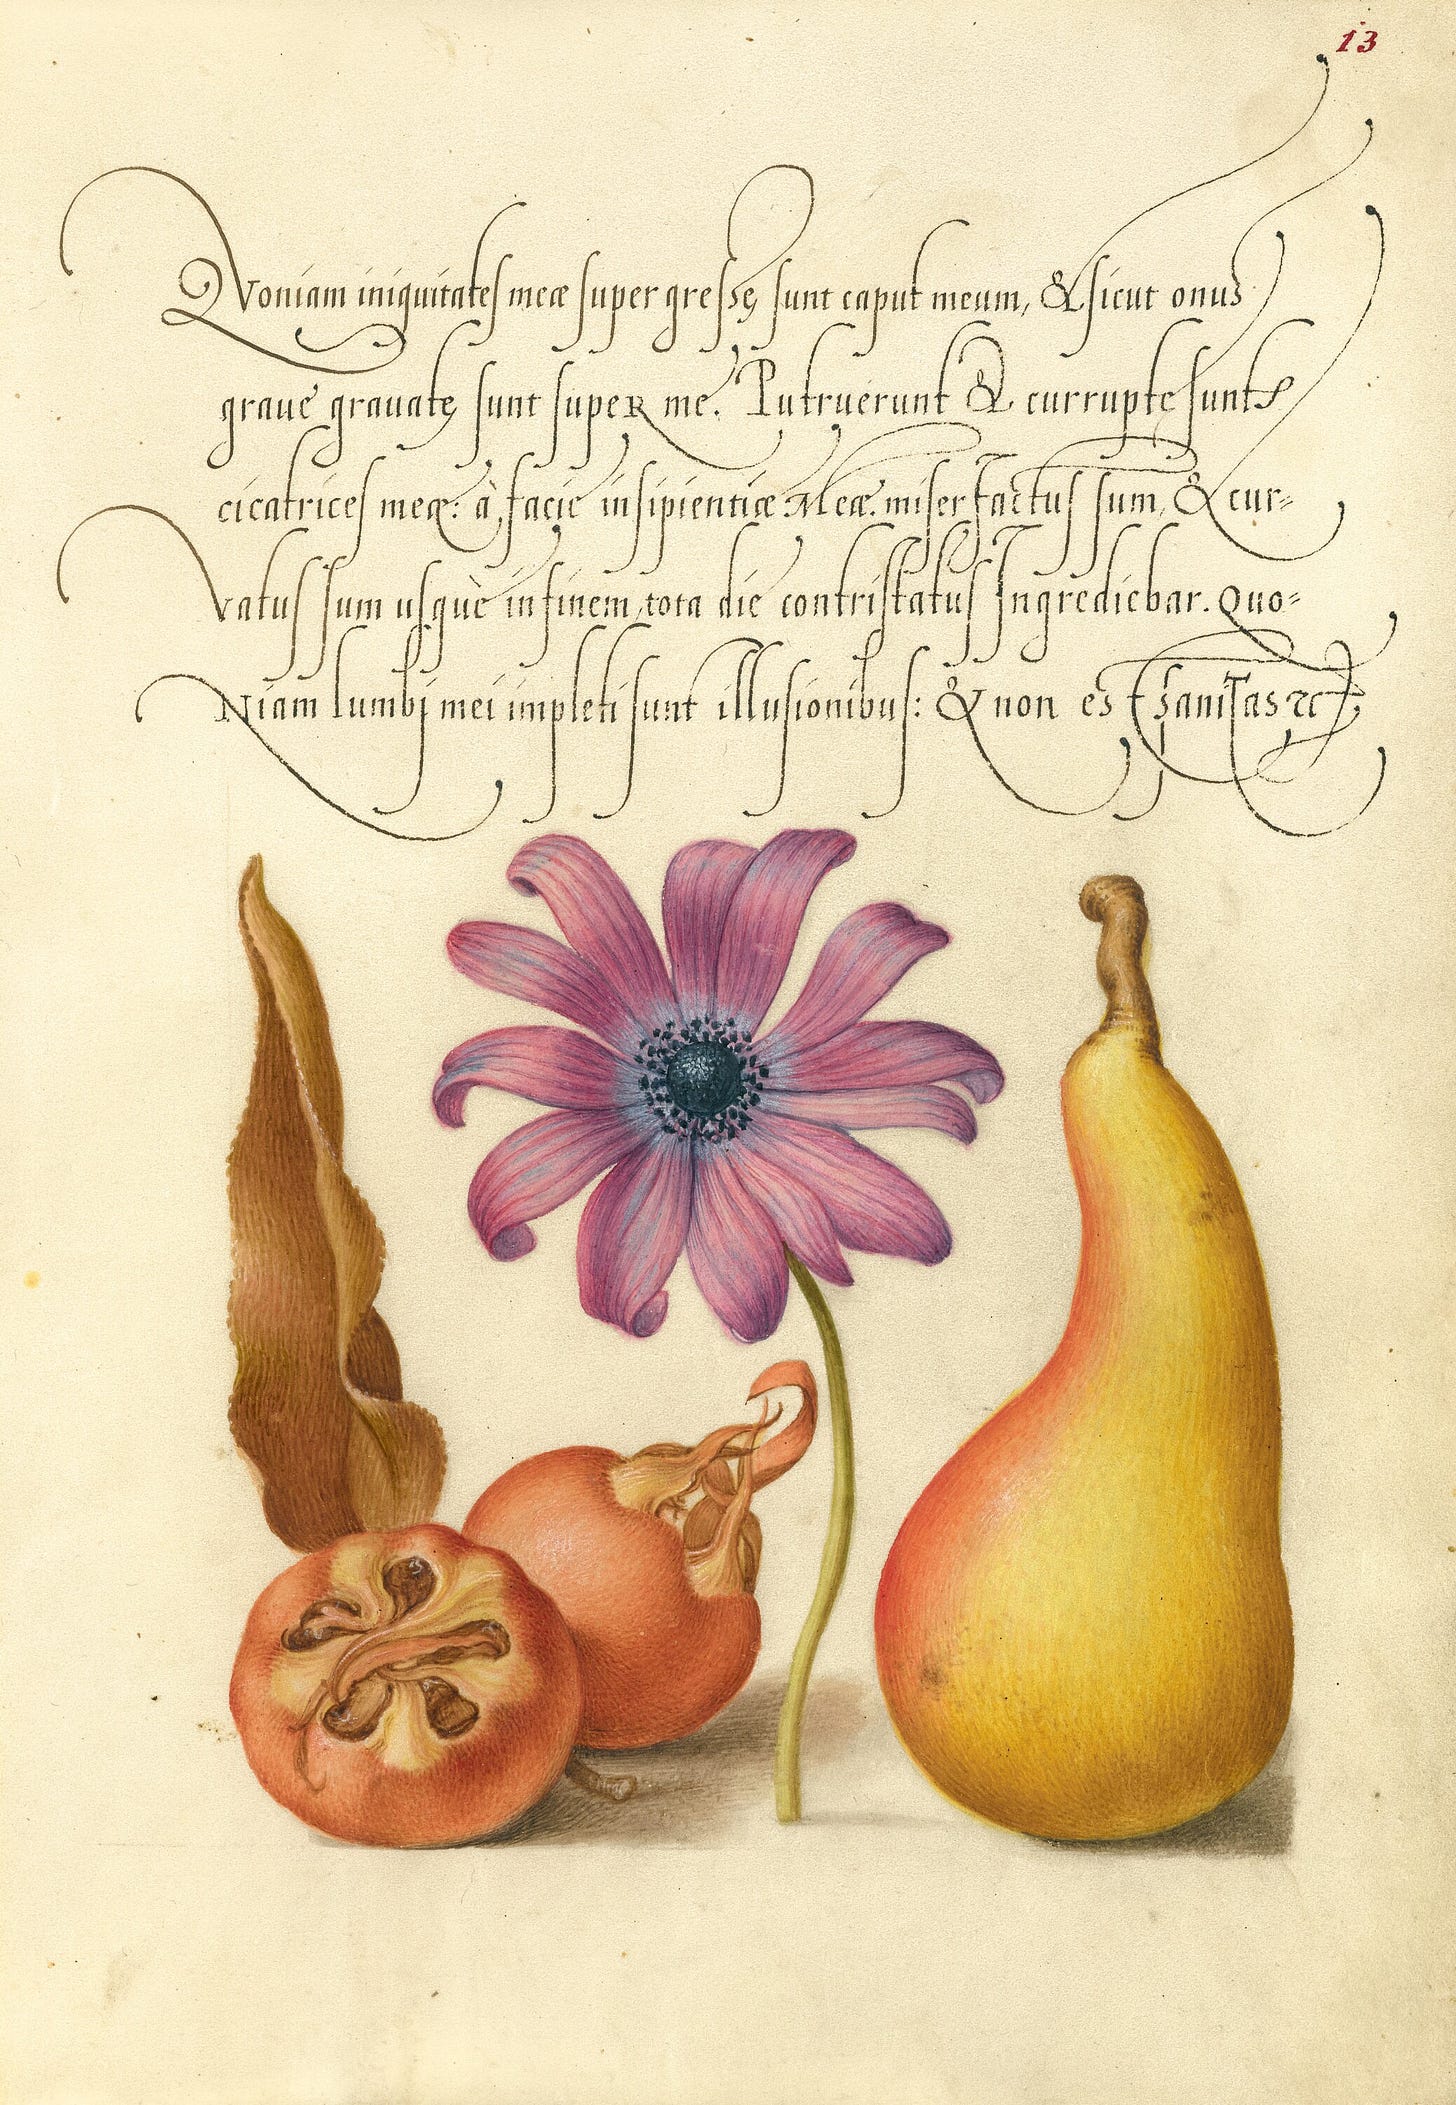 13
Quoniam iniquitates meæ super gressę sunt caput meum, & sicut onus
graue grauatę sunt super me. Putruerunt & currupte sunt
cicatrices meæ: à facie insipientiæ Meæ. miser factus sum, & cur=
vatus sum usquè in finem, tota die contristatus Ingrediebar. Quo=
Niam lumbj mei impleti sunt illusionibus: & non est sanitas